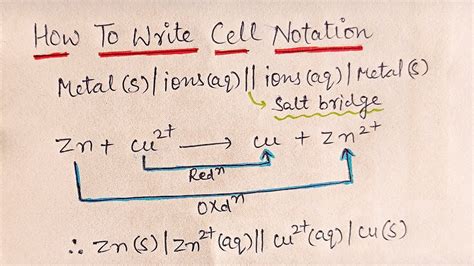 How To Write Cell Notation
Metal(s)|ions(aq)||ions(aq)|Metal(s)
Salt bridge
Zn + cu²⁺ ⟶ cu + Zn²⁺
Redⁿ
OXdⁿ
∴ Zn(s)|Zn²⁺(aq)||cu²⁺(aq)|cu(s)